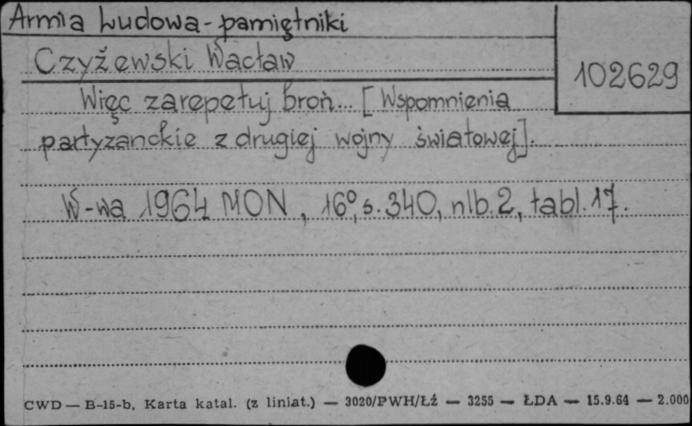 Armia Ludowa - pamiętniki
Czyżewski Wacław
102629
Więc zarepetuj broń... [Wspomnienia
partyzanckie z drugiej wojny światowej].
W-wa 1964 MON, 16°, s. 340, nlb. 2, tabl. 17.
CWD — B-15-b, Karta katal. (z liniat.) — 3020/PWH/Łź — 3255 — ŁDA — 15.9.64 — 2.000